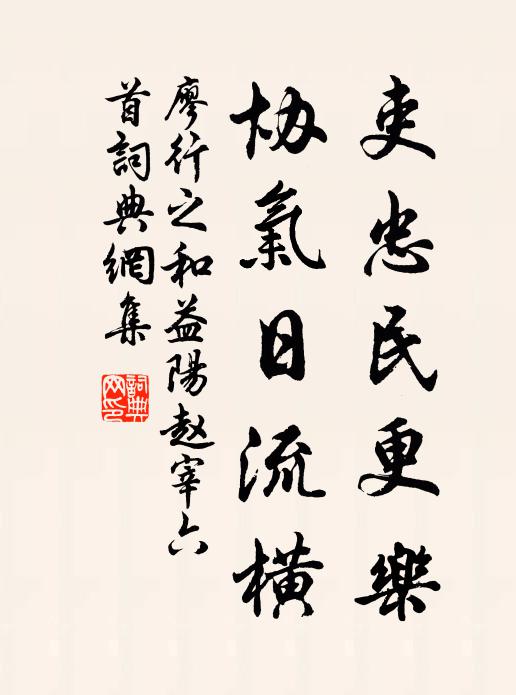 吏忠民更樂
協氣日流橫
廖行之和益陽趙宰六
首詞典網集
詞典
网印